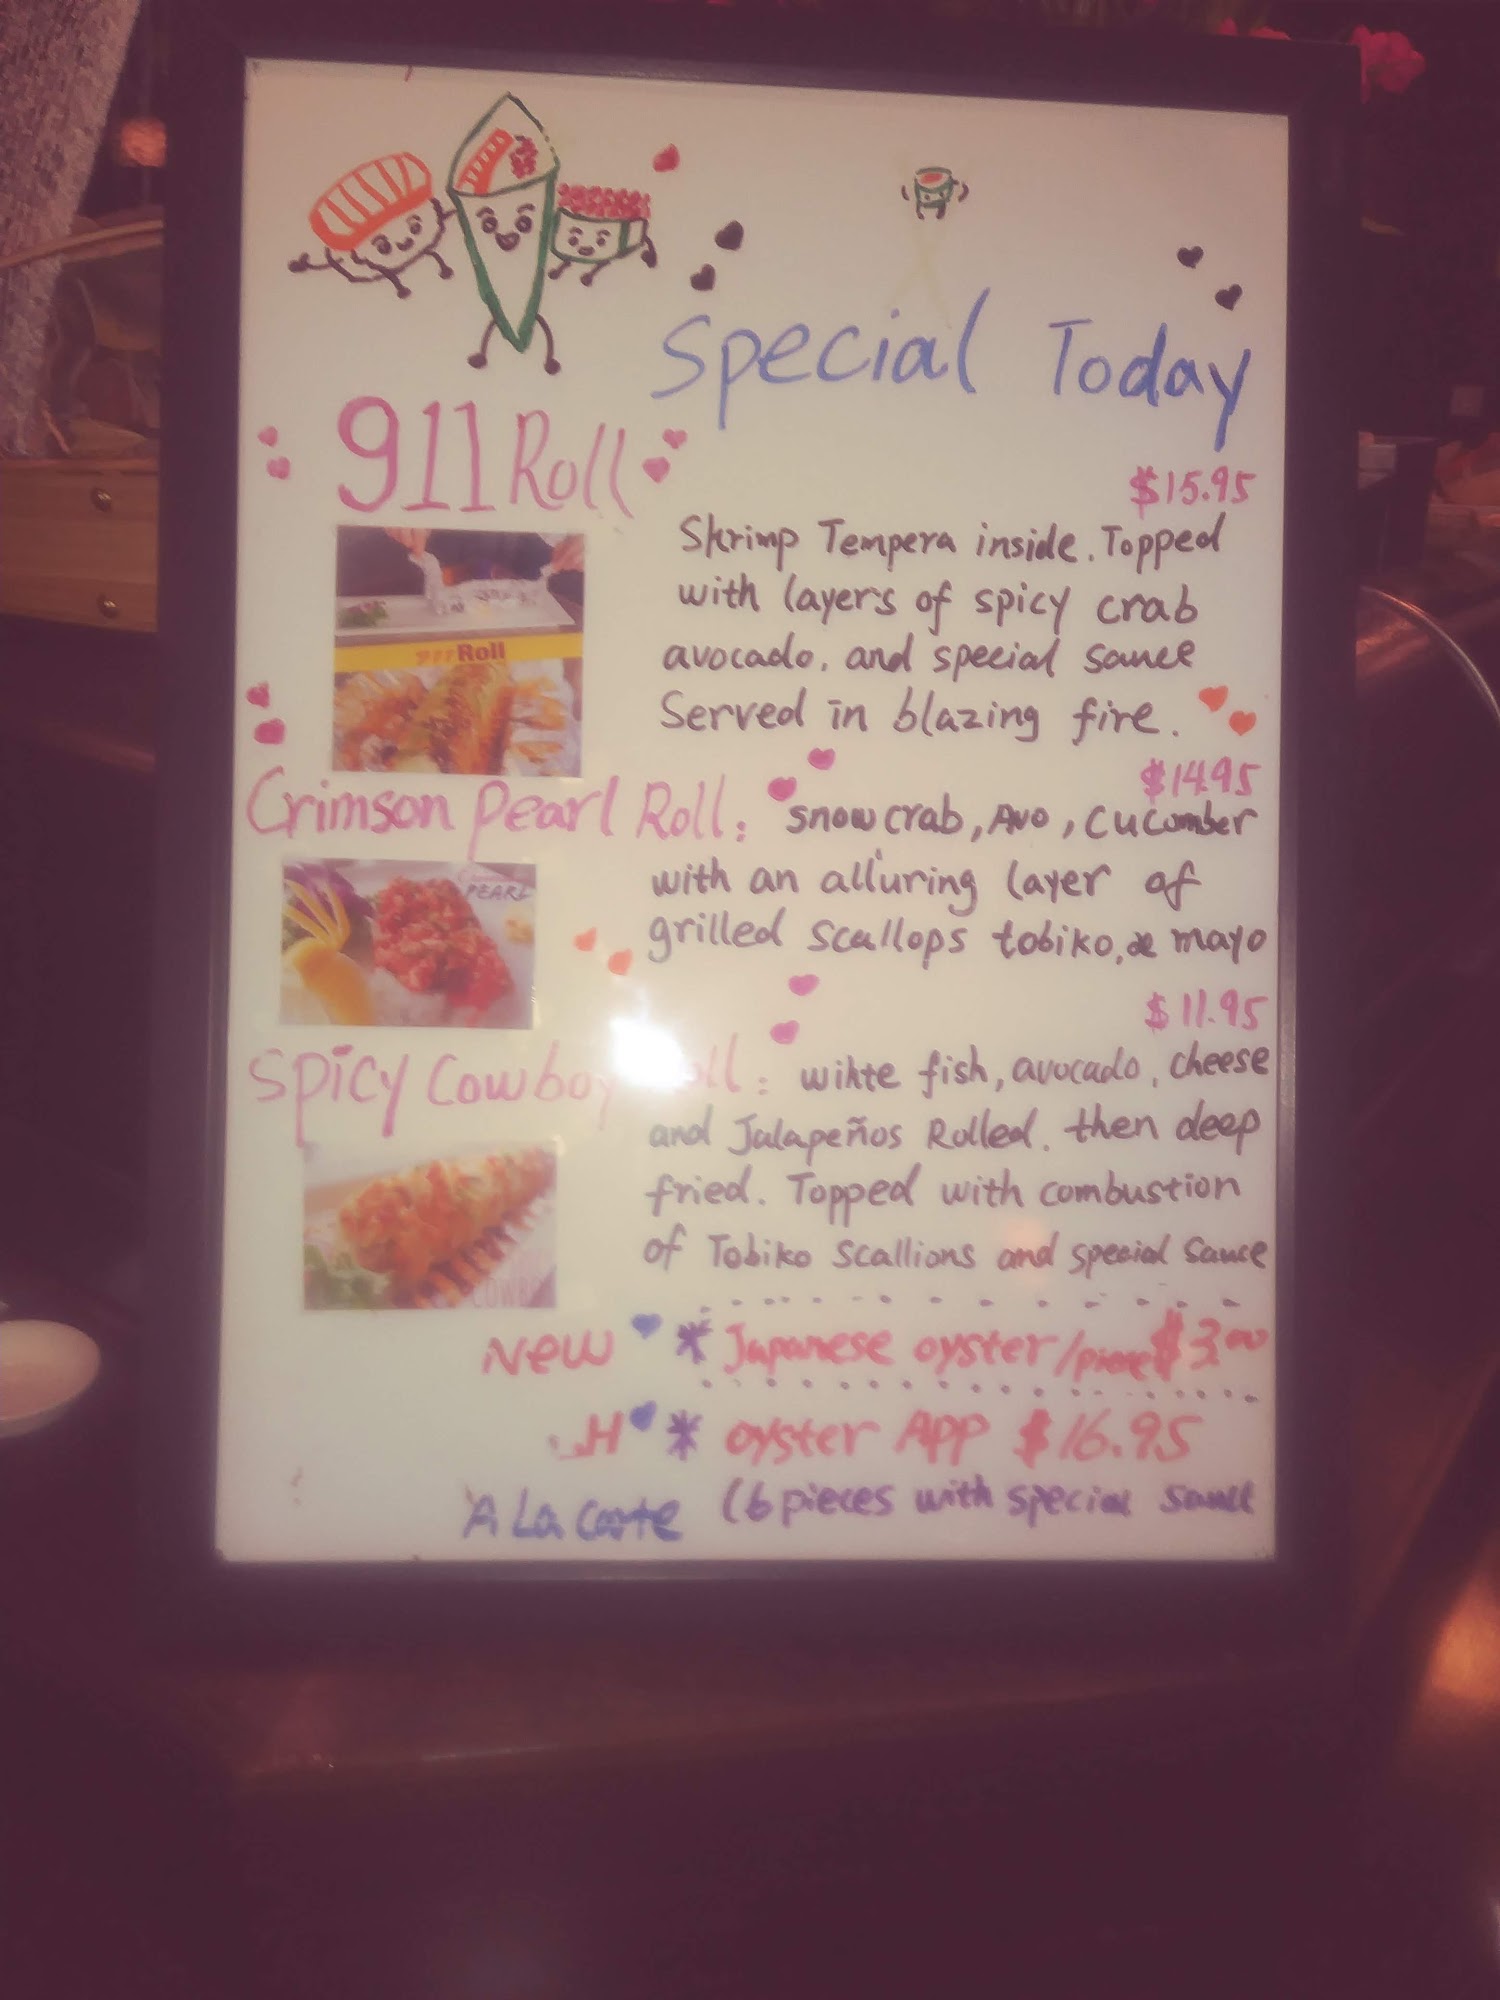 Special Today
911 Roll
$15.95
Shrimp Tempera inside. Topped
with layers of spicy crab
avocado, and special sauce
Served in blazing fire.
Roll
$14.95
Crimson Pearl Roll: snow crab, Avo, Cucumber
with an alluring layer of
grilled scallops tobiko, & mayo
PEARL
$11.95
Spicy Cowboy Roll: wihte fish, avocado, cheese
and Jalapeños Rolled. then deep
fried. Topped with combustion
of Tobiko scallions and special sauce
New * Japanese oyster/piece $3.00
* oyster App $16.95
A La Carte (6 pieces with special sauce